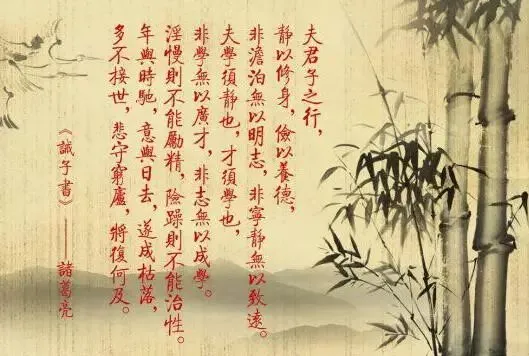 夫君子之行，
靜以修身，儉以養德，
非澹泊無以明志，非寧靜無以致遠。
夫學須靜也，才須學也，
非學無以廣才，非志無以成學。
淫慢則不能勵精，險躁則不能治性。
年與時馳，意與日去，遂成枯落，
多不接世，悲守窮廬，將復何及。
《誡子書》——諸葛亮